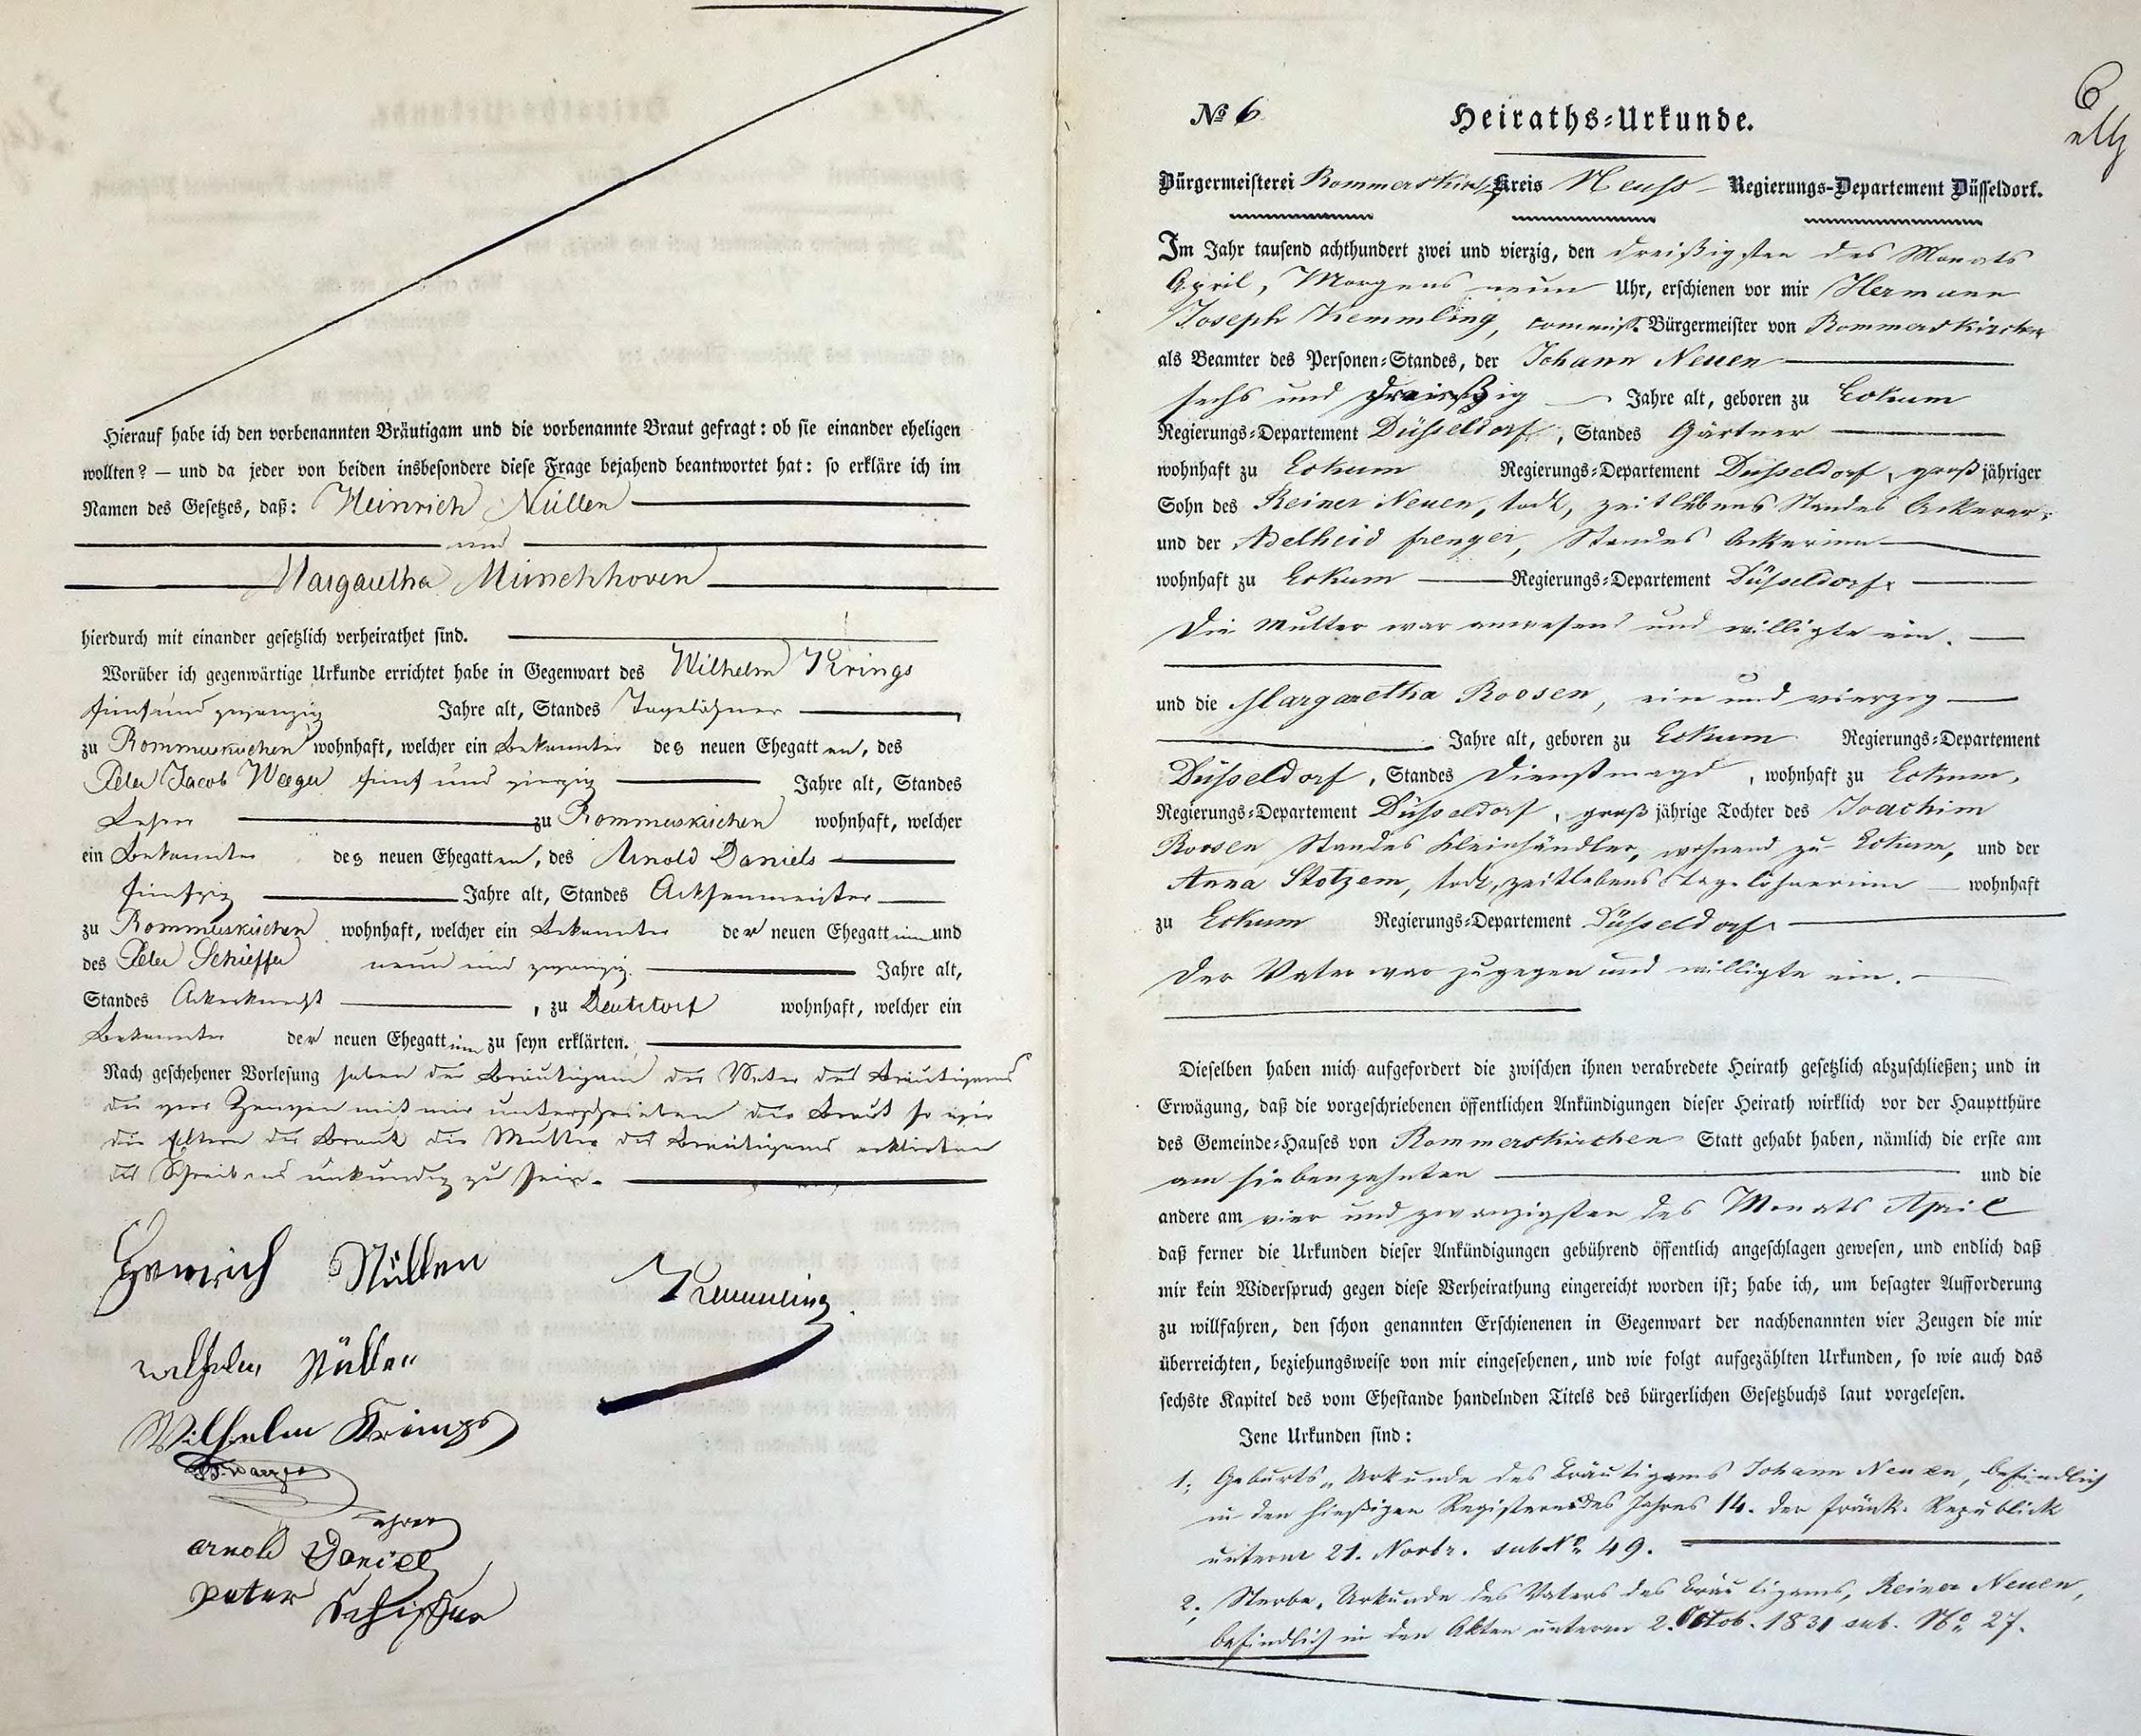 Hierauf habe ich den vorbenannten Bräutigam und die vorbenannte Braut gefragt: ob sie einander eheligen
wollten? — und da jeder von beiden insbesondere diese Frage bejahend beantwortet hat: so erkläre ich im
Namen des Gesetzes, daß: Heinrich Nüllen
und
Margaretha Münchhoven
hierdurch mit einander gesetzlich verheirathet sind.
Worüber ich gegenwärtige Urkunde errichtet habe in Gegenwart des Wilhelm Krings
fünf und zwanzig Jahre alt, Standes Tagelöhner
zu Rommerskirchen wohnhaft, welcher ein Bekannter des neuen Ehegatten, des
Peter Jacob Weger fünf und vierzig Jahre alt, Standes
Lehrer zu Rommerskirchen wohnhaft, welcher
ein Bekannter des neuen Ehegatten, des Arnold Daniels
fünfzig Jahre alt, Standes
zu Rommerskirchen wohnhaft, welcher ein Bekannter der neuen Ehegattinn und
des Peter Schieffer neun und zwanzig Jahre alt,
Standes Ackerknecht, zu wohnhaft, welcher ein
Bekannter der neuen Ehegattinn zu seyn erklärten.
Nach geschehener Vorlesung haben der Bräutigam der Vater des Bräutigams
die vier Zeugen mit mir unterschrieben die Braut so wie
die Eltern der Braut die Mutter des Bräutigams erklärten
des Schreibens unkundig zu sein.
Heinrich Nüllen
Kemmling
Wilhelm Nüllen
Wilhelm Krings
Lehrer
arnold Daniels
peter Schiffer
6
№ 6
Heiraths-Urkunde.
Bürgermeisterei Rommerskirch Kreis Neuss Regierungs-Departement Düsseldorf.
Im Jahr tausend achthundert zwei und vierzig, den dreißigsten des Monats
April, Morgens neun Uhr, erschienen vor mir Hermann
Joseph Kemmling, commiss. Bürgermeister von Rommerskirchen
als Beamter des Personen-Standes, der Johann Neuen
sechs und dreißig Jahre alt, geboren zu Eckum
Regierungs-Departement Düsseldorf, Standes Gärtner
wohnhaft zu Eckum Regierungs-Departement Düsseldorf, großjähriger
Sohn des Reiner Neuen, todt, zeitlebens Standes Ackerer,
und der Adelheid Frenger, Standes Ackerinn
wohnhaft zu Eckum Regierungs-Departement Düsseldorf.
Die Mutter war anwesend und willigte ein.
und die Margaretha Roosen, ein und vierzig
Jahre alt, geboren zu Eckum Regierungs-Departement
Düsseldorf, Standes Dienstmagd, wohnhaft zu Eckum,
Regierungs-Departement Düsseldorf, großjährige Tochter des Joachim
Roosen Standes Kleinhändler, wohnend zu Eckum, und der
Anna Stotzem, todt, zeitlebens Tagelöhnerinn wohnhaft
zu Eckum Regierungs-Departement Düsseldorf.
Der Vater war zugegen und willigte ein.
Dieselben haben mich aufgefordert die zwischen ihnen verabredete Heirath gesetzlich abzuschließen; und in
Erwägung, daß die vorgeschriebenen öffentlichen Ankündigungen dieser Heirath wirklich vor der Hauptthüre
des Gemeinde-Hauses von Rommerskirchen Statt gehabt haben, nämlich die erste am
am siebenzehnten und die
andere am vier und zwanzigsten des Monats April
daß ferner die Urkunden dieser Ankündigungen gebührend öffentlich angeschlagen gewesen, und endlich daß
mir kein Widerspruch gegen diese Verheirathung eingereicht worden ist; habe ich, um besagter Aufforderung
zu willfahren, den schon genannten Erschienenen in Gegenwart der nachbenannten vier Zeugen die mir
überreichten, beziehungsweise von mir eingesehenen, und wie folgt aufgezählten Urkunden, so wie auch das
sechste Kapitel des vom Ehestande handelnden Titels des bürgerlichen Gesetzbuchs laut vorgelesen.
Jene Urkunden sind:
1. Geburts-Urkunde des Bräutigams Johann Neuen, befindlich
in den hiesigen Registern des Jahres 14. der fränk. Republick
unterm 21. Novbr. sub No. 49.
2. Sterbe-Urkunde des Vaters des Bräutigams, Reiner Neuen,
befindlich in den Akten unterm 2. Octob. 1831 sub. No. 27.